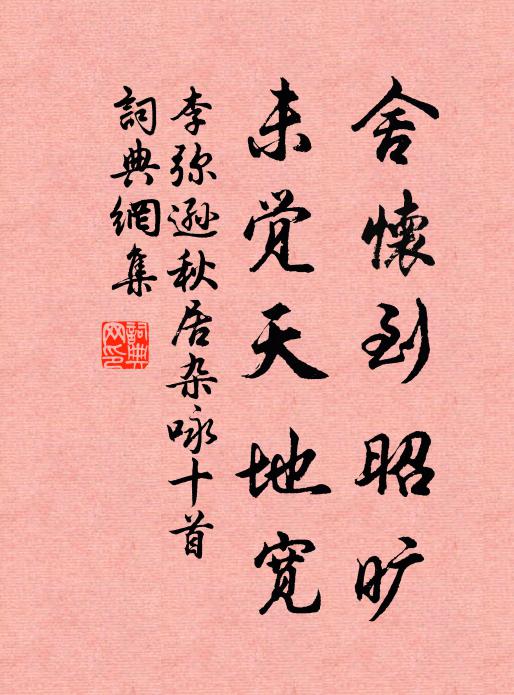 舍懷到昭旷
未觉天地寬
李弥遜秋居杂咏十首
詞典網集
詞典网印